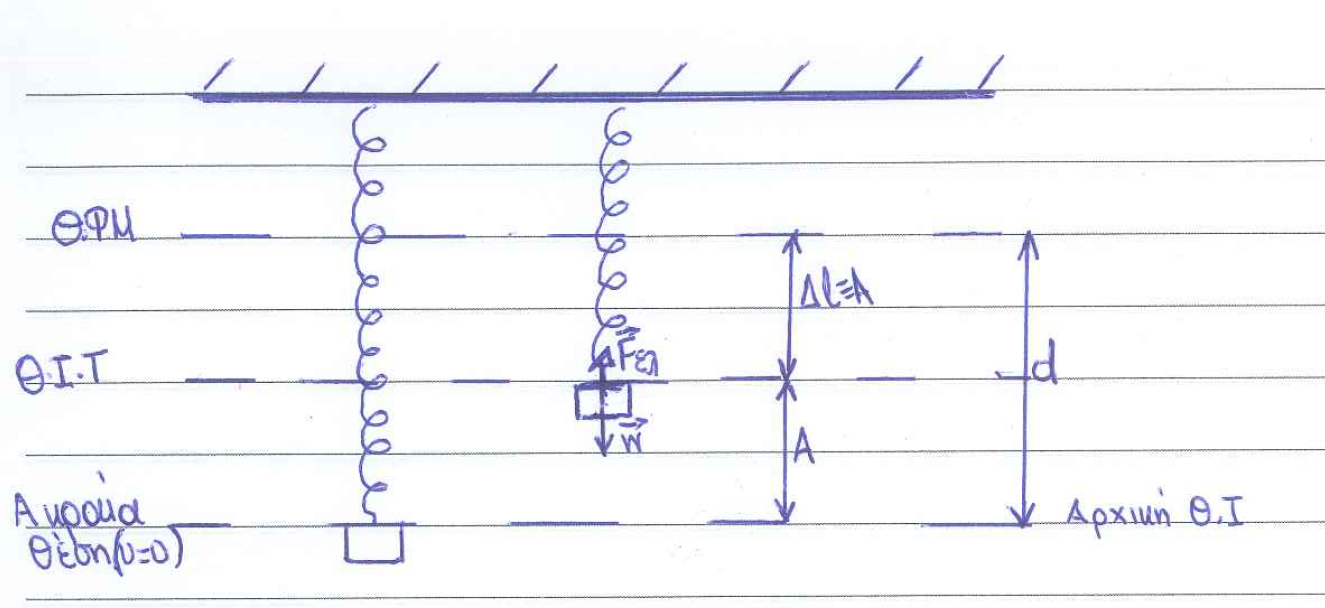 Θ.ΦΜ
Δl≡A
Θ.Ι.Τ
F⃗ελ
d
w⃗
A
Ακραία
θέση(υ=0)
Αρχική Θ.Ι